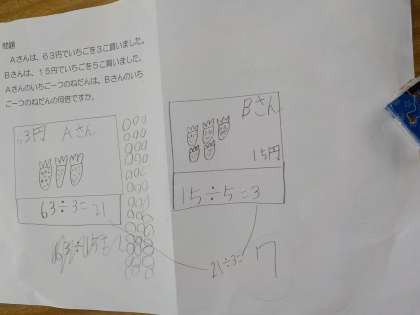 問題
Aさんは、63円でいちごを3こ買いました。
Bさんは、15円でいちごを5こ買いました。
Aさんのいちご一つのねだんは、Bさんのいち
ご一つのねだんの何倍ですか。
3円 Aさん
63÷3=21
Bさん
15円
15÷5=3
21÷3=7